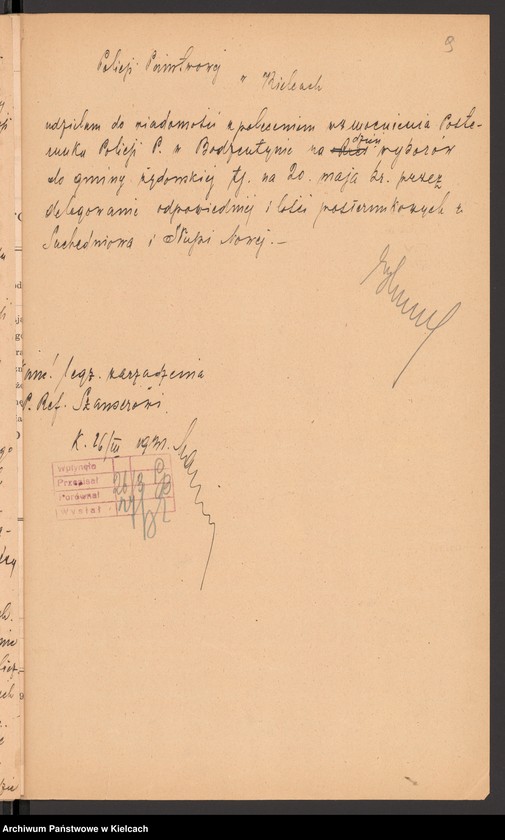 9
Policji Państwowej
w Kielcach
udzielam do wiadomości z poleceniem wzmocnienia Poste-
runku Policji P. w Bodzentynie na dzień wyborów
do gminy żydowskiej tj. na 20. maja br. przez
delegowanie odpowiedniej ilości posterunkowych z
Suchedniowa i Słupi Nowej.—
1 egz. zarządzenia
P. Ref. Szanserowi.
K. 26/III 1931.
Wpłynęło
Przepisał 26 3
Porównał
Wysłał 27
Archiwum Państwowe w Kielcach